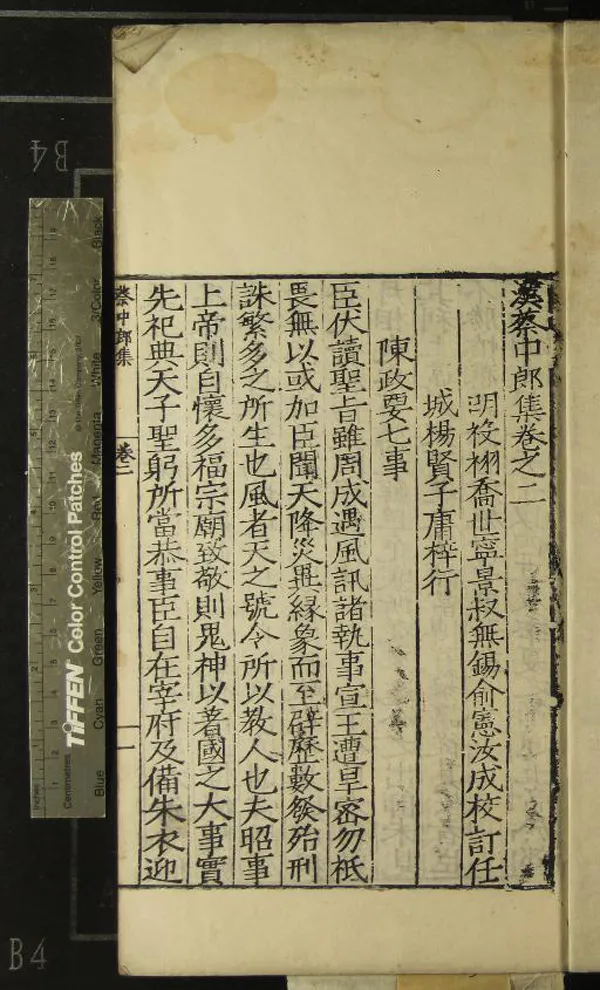 漢蔡中郎集卷之二
明後栩喬世寧景叔無錫俞憲汝成校訂任
城楊賢子庸梓行
陳政要七事
臣伏讀聖旨雖周成遇風訊諸執事宣王遭旱密勿祗
畏無以或加臣聞天降災異緣象而至辟歷數發殆刑
誅繁多之所生也風者天之號令所以教人也夫昭事
上帝則自懷多福宗廟致敬則鬼神以著國之大事實
先祀典天子聖躬所當恭事臣自在宰府及備朱衣迎
蔡中郎集
卷二
一
B4
B4
Inches
Centimetres
TIFFEN Color Control Patches
Blue Cyan Green Yellow Red Magenta White 3/Color Black